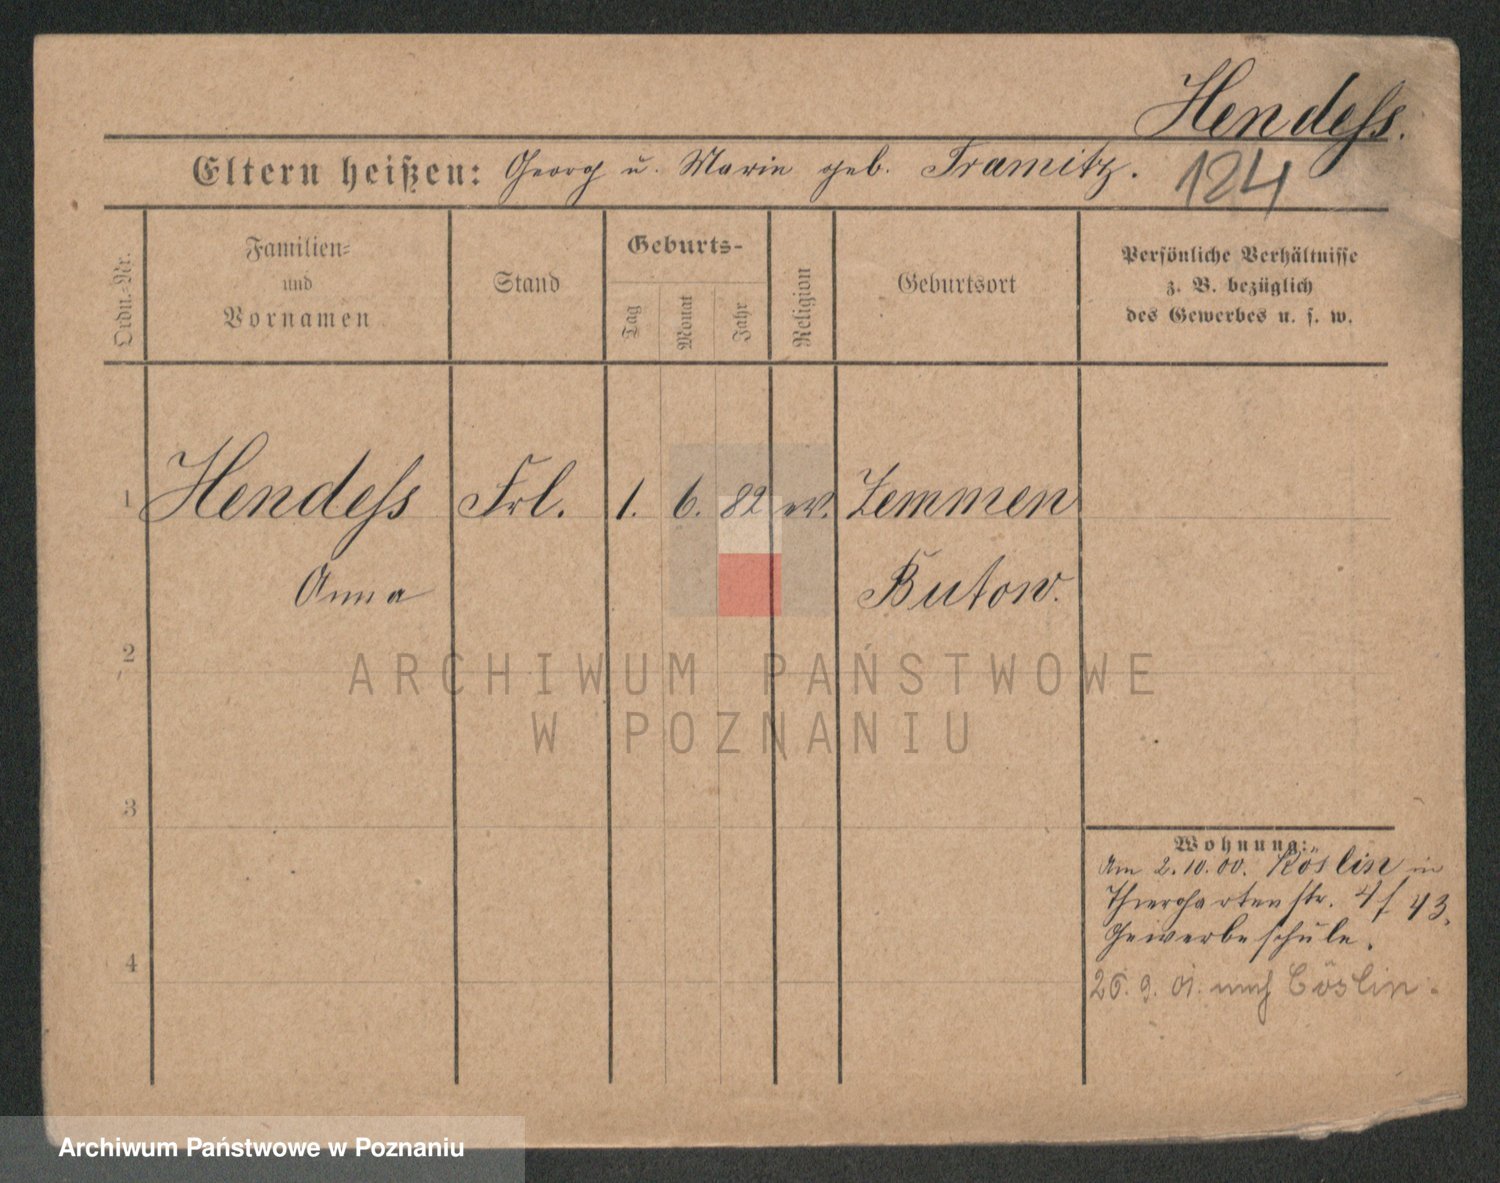 Hendeſs.
Eltern heißen: Georg u. Marie geb. Tramitz.
124
Ordn.-Nr.
Familien=
und
Vornamen
Stand
Geburts-
Tag
Monat
Jahr
Religion
Geburtsort
Persönliche Verhältnisse
z. B. bezüglich
des Gewerbes u. s. w.
1 Hendeſs Frl. 1. 6. 82 ev. Zemmen
Anna Butow.
2
ARCHIWUM PAŃSTWOWE
W POZNANIU
3
Wohnung:
Am 2.10.00. Köslin in
Thiergartenstr. 4/43.
Gewerbeschule.
4
25. 9. 01. nach Cöslin.
Archiwum Państwowe w Poznaniu